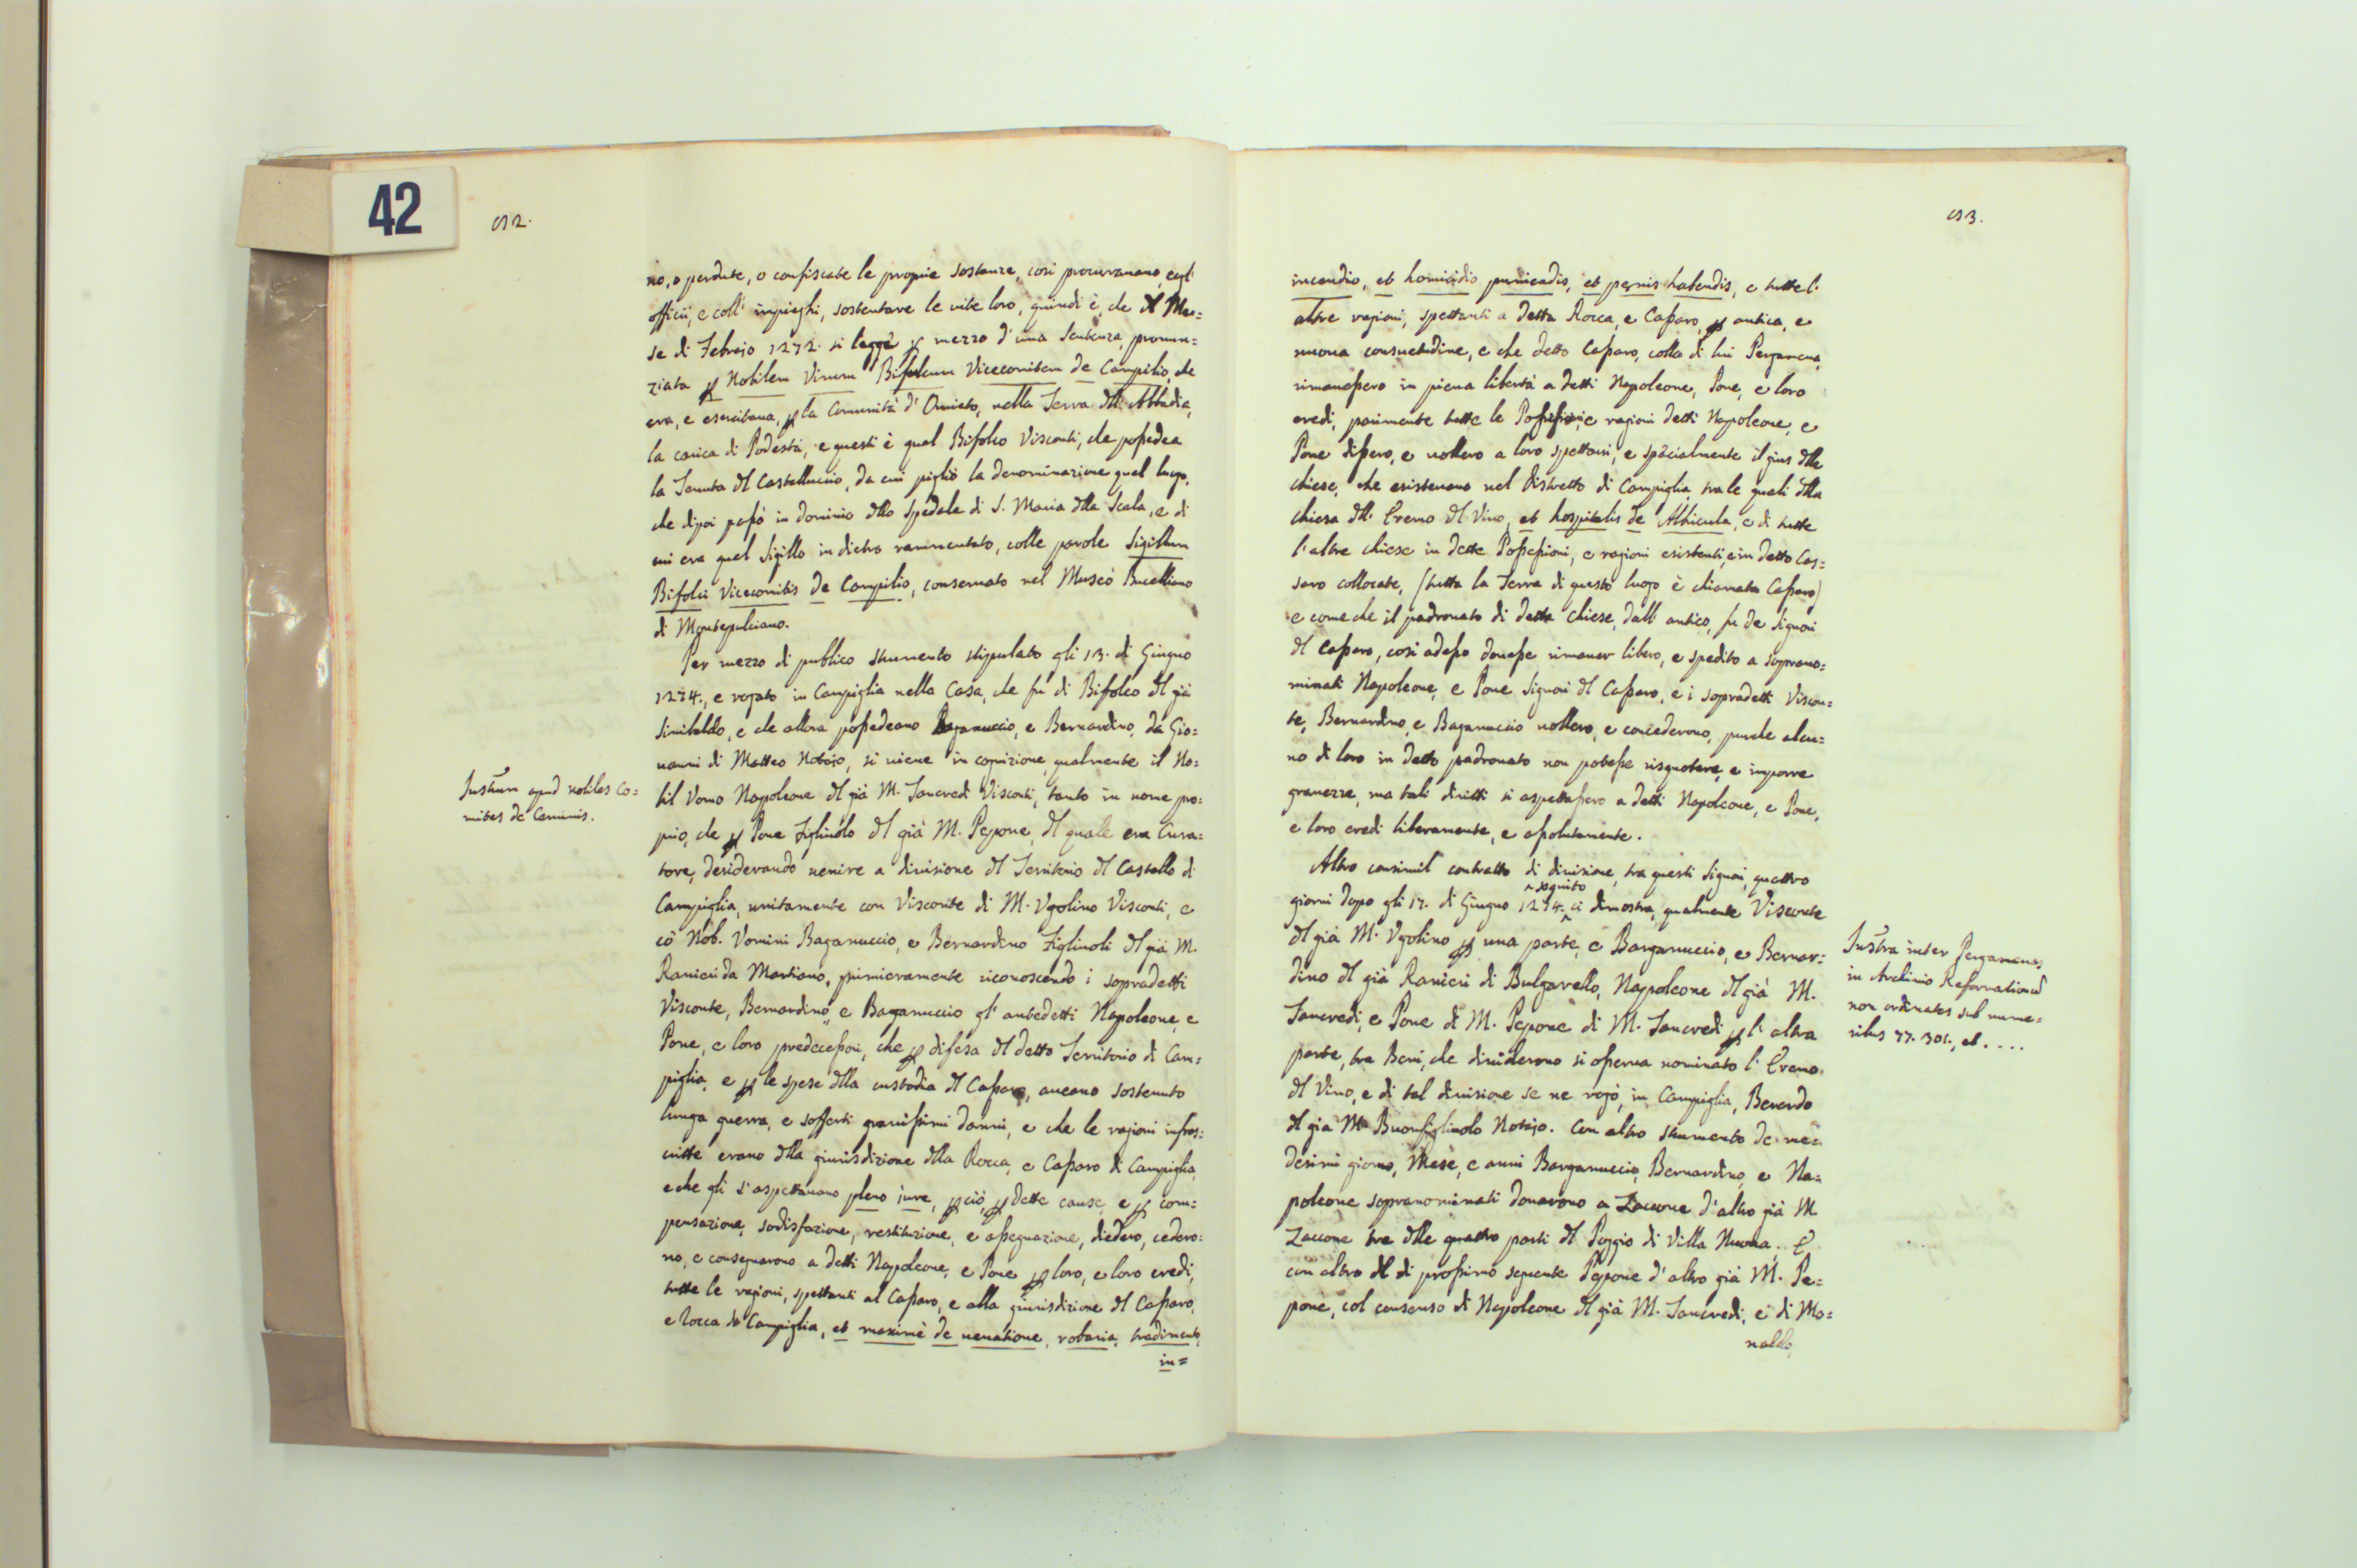 42
92.
no, o perdute, o confiscate le proprie sostanze, così procuravano, cogl'
officii, e coll' impieghi, sostentare le vite loro, quindi è, che Il Me=
se di Febrajo 1272. si legge per mezzo d'una sentenza pronun=
ziata per Nobilem Virum Bifolcum Vicecomitem de Campilio, che
era, e esercitava, per la Comunità d'Orvieto, nella Terra dell' Abbadia,
la carica di Podestà, e questi è quel Bifolco Visconti, che possedea
la Tenuta del Castelluccio, da cui pigliò la denominazione quel luogo,
che dipoi passò in dominio dello Spedale di S. Maria della Scala, e di
cui era quel Sigillo in dietro rammentato, colle parole Sigillum
Bifolci Vicecomitis de Campilio, conservato nel Museo Bucelliano
di Montepulciano.
Per mezzo di publico strumento stipulato gli 13. di Giugno
1274., e rogato in Campiglia nella Casa, che fu di Bifolco del già
Sinibaldo, e che allora possedeano Baganuccio, e Bernardino, da Gio=
vanni di Matteo Notajo, si viene in cognizione, qualmente il No=
bil Vomo Napoleone del già M. Tancredi Visconti, tanto in nome pro=
prio, che per Pone Figliuolo del già M. Pepone, del quale era Cura=
tore, desiderando venire a divisione del Territorio del Castello di
Campiglia, unitamente con Visconte di M. Vgolino Visconti, e
cò Nob. Vomini Baganuccio, e Bernardino Figliuoli del già M.
Ranieri da Martiano, primieramente riconoscendo i sopradetti
Visconte, Bernardino, e Baganuccio gl' antedetti Napoleone, e
Pone, e loro predecessori, che per difesa del detto Territorio di Cam=
piglia, e per le spese della custodia del Cassaro, aveano sostenuto
lunga guerra, e sofferti gravissimi danni, e che le ragioni infras=
critte erano della giurisdizione della Rocca, e Cassaro di Campiglia,
e che gli s'aspettavano pleno iure, per ciò, per dette cause, e per com=
pensazione, sodisfazione, restituzione, e assegnazione, diedero, cedero=
no, e consegnarono a detti Napoleone, e Pone per loro, e loro eredi,
tutte le ragioni, spettanti al Cassaro, e alla giurisdizione del Cassaro,
e Rocca di Campiglia, et maximè de venatione, robaria, tradimento,
in=
Instrum apud nobiles Co=
mites de
93.
incendio, et homicidio puniendis, et pernis habendis, e tutte l'
altre ragioni, spettanti a detta Rocca, e Cassaro, per antica, e
nuova consuetudine, e che detto Cassaro, colla di lui Pergamena,
rimanessero in piena libertà a detti Napoleone, Pone, e loro
eredi, parimente tutte le Possessioni, e ragioni detti Napoleone, e
Pone dissero, e vollero a loro spettarsi, e spècialmente il gius delle
chiese, che esistevano nel Distretto di Campiglia, tra le quali della
chiesa dell' Eremo del Vivo, et hospitalis de Albicula, e di tutte
l'altre chiese in dette Possessioni, e ragioni esistenti, e in detto Cas=
saro collocate, (tutta la Terra di questo luogo è chiamata Cassaro)
e come che il padronato di dette chiese, dall' antico, fu de Signori
del Cassaro, così adesso dovesse rimaner libero, e spedito a soprano=
minati Napoleone, e Pone Signori del Cassaro, e i sopradetti Viscon=
te, Bernardino, e Baganuccio vollero, e concederono, purche alcu=
no di loro in detto padronato non potesse risquotere, e imporre
gravezze, ma tali diritti si aspettassero a detti Napoleone, e Pone,
e loro eredi liberamente, e assolutamente.
Altro consimil contratto di divisione, tra questi Signori, quattro
giorni dopo gli 17. di Giugno 1274. seguito ci dimostra, qualmente Visconte
del già M. Vgolino per una parte, e Barganuccio, e Bernar=
dino del già Ranieri di Bulgarello, Napoleone del già M.
Tancredi, e Pone di M. Pepone di M. Tancredi per l' altra
parte, tra Beni, che dividerono si osserva nominato l' Eremo
del Vivo, e di tal divisione se ne rogò, in Campiglia, Berardo
del già M. Buonfigliuolo Notajo. Con altro strumento de me=
desimi giorno, Mese, e anni Barganuccio, Bernardino, e Na=
poleone sopranominati donarono a Zaccone d'altro già M.
Zaccone tre delle quattro parti del Poggio di Villa Nuova. E
con altro del di prossimo seguente Pepone d'altro già M. Pe=
pone, col consenso di Napoleone del già M. Tancredi, e di Mo=
naldo,
Instra inter Pergamenas
in Archivio Reformationum
non ordinates sub nume=
ribus 77. 301., et . . . .